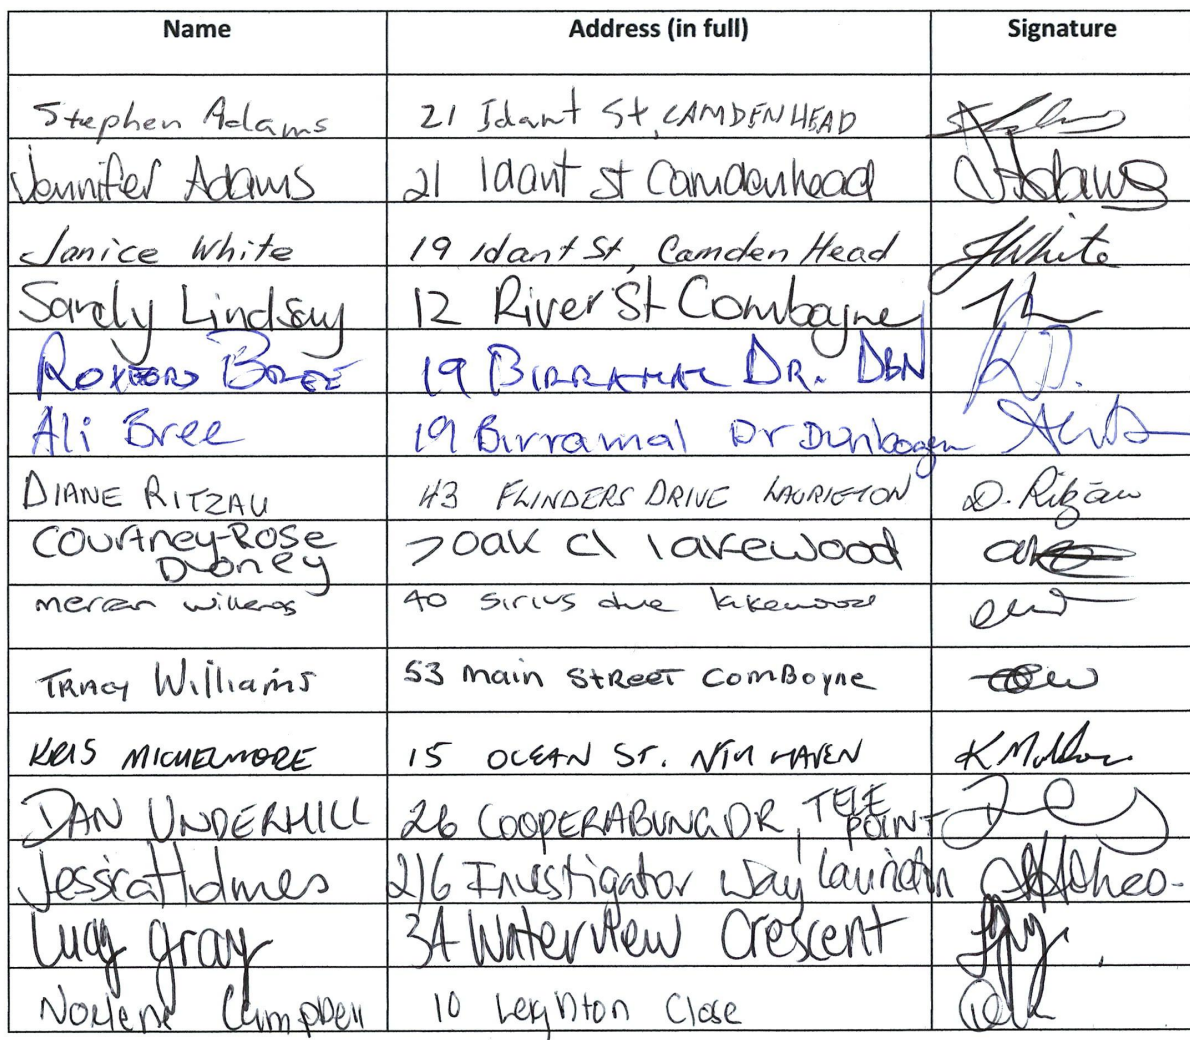 Name Address (in full) Signature
Stephen Adams 21 Idant St, CAMDEN HEAD
Jennifer Adams 21 Idant St Camdenhead JAdams
Janice White 19 Idant St, Camden Head JWhite
Sandy Lindsay 12 River St Comboyne
BREE 19 BIRRAMAL DR. DBN
Ali Bree 19 Birramal Dr Dunbogan
DIANE RITZAU 43 FLINDERS DRIVE LAURIETON D. Ritzau
Courtney-Rose
Dooney 7 oak cl lakewood
40 sirius drve lakewood
TRACY Williams 53 Main STREET ComBoyne
KRIS MICHELMORE 15 OCEAN ST. NTH HAVEN
DAN UNDERHILL 26 COOPERABUNG DR, TELE
POINT
Jessica Holmes 2/6 Investigator Way Laurieton
Lucy Gray 34 Waterview Crescent
Norlene Campbell 10 Leighton Close